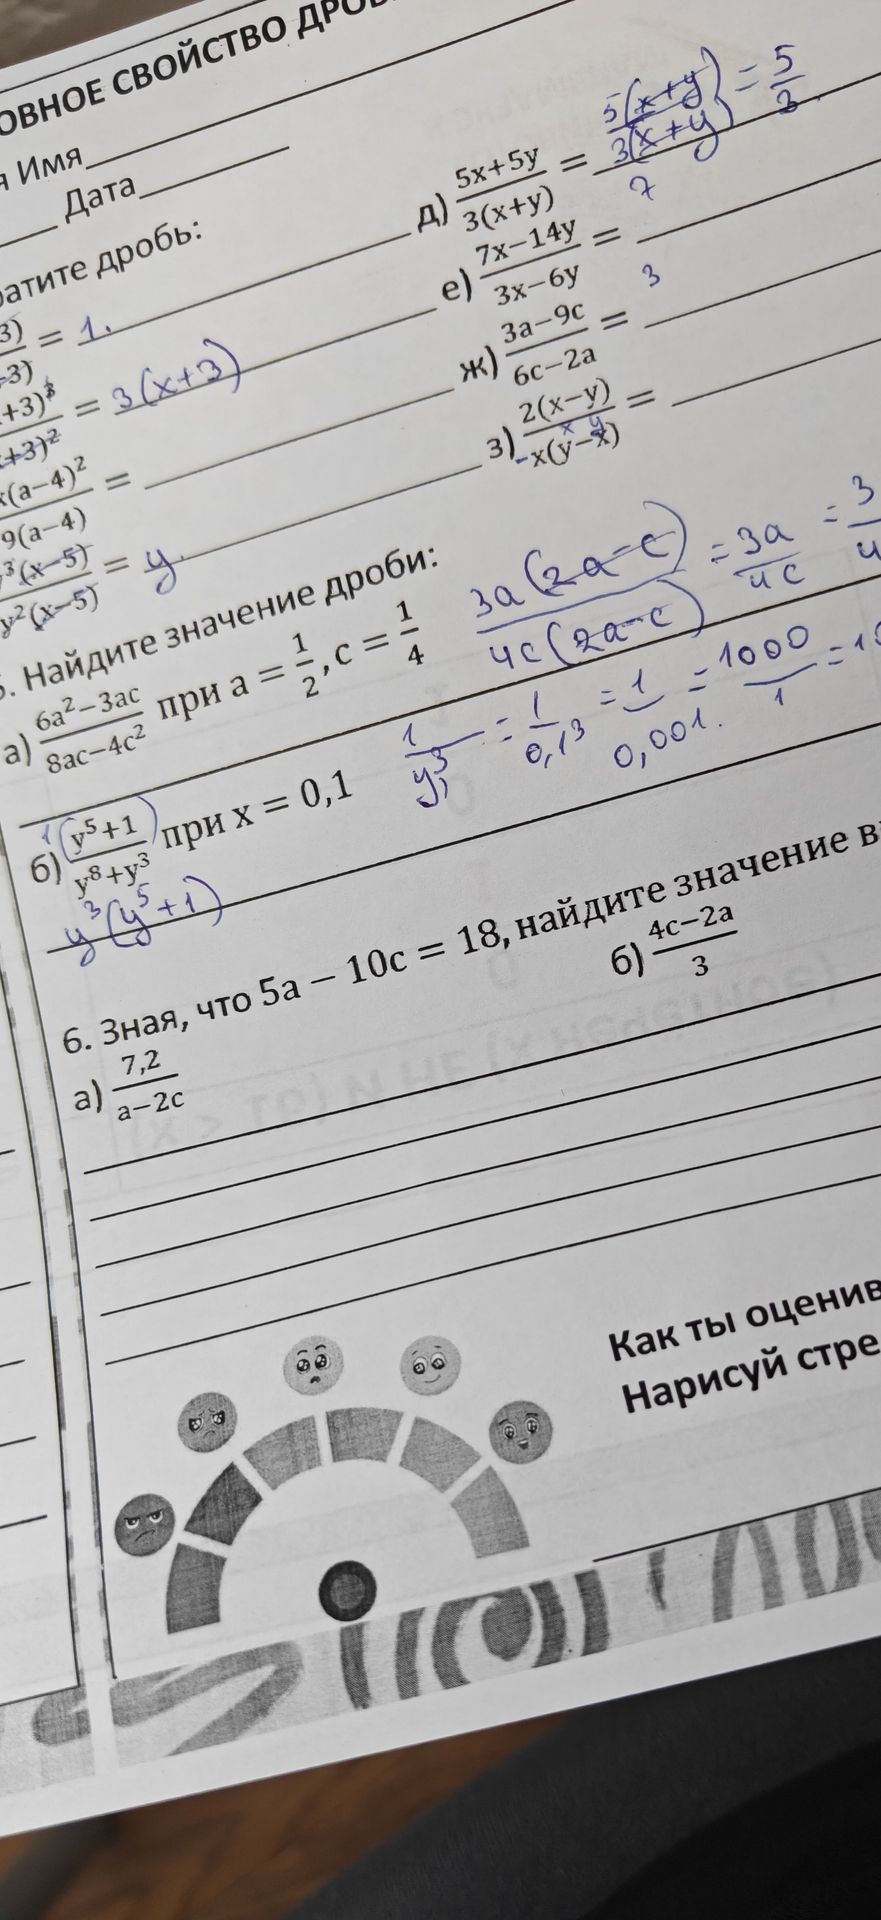 ОВНОЕ СВОЙСТВО
Имя
Дата
ратите дробь:
3)/-3) = 1.
+3)³/x+3)² = 3(x+3)
x(a−4)²/9(a−4) =
y³(x−5)/y²(x−5) = y
д) 5x+5y/3(x+y) = 5(x+y)/3(x+y) = 5/3
7
е) 7x−14y/3x−6y =
3
ж) 3a−9c/6c−2a =
з) 2(x−y)/−x(y−x) =
x y
5. Найдите значение дроби:
а) 6a²−3ac/8ac−4c² при a = 1/2, c = 1/4 3a(2a−c)/4c(2a−c) = 3a/4c = 3/4
б) 1(y⁵+1)/y⁸+y³ при x = 0,1 1/y³ = 1/0,1³ = 1/0,001. = 1000/1 = 10
y³(y⁵+1)
6. Зная, что 5a − 10c = 18, найдите значение в
а) 7,2/a−2c б) 4c−2a/3
Как ты оценив
Нарисуй стре